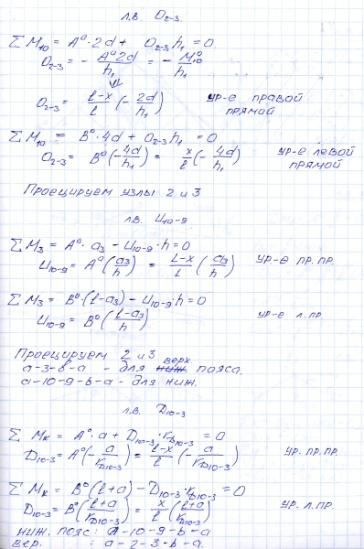 л.в. O₂₋₃
ΣM₁₀ = A⁰·2d + O₂₋₃h₁ = 0
O₂₋₃ = - A⁰2d/h₁ = - M⁰₁₀/h₁
O₂₋₃ = (l-x)/l (- 2d/h₁) ур-е правой прямой
ΣM₁₀ = B⁰·4d + O₂₋₃h₁ = 0
O₂₋₃ = B⁰(- 4d/h₁) = x/l (- 4d/h₁) ур-е левой прямой
Проецируем узлы 2 и 3
л.в. U₁₀₋₉
ΣM₃ = A⁰·a₃ - U₁₀₋₉·h = 0
U₁₀₋₉ = A⁰(a₃/h) = (L-x)/l (a₃/h) ур-е пр.пр.
ΣM₃ = B⁰(l-a₃) - U₁₀₋₉·h = 0
U₁₀₋₉ = B⁰((l-a₃)/h) ур-е л.пр.
Проецируем 2 и 3
a-3-b-a - для верх. пояса.
a-10-9-b-a - для ниж.
л.в. D₁₀₋₃
ΣMк = A⁰·a + D₁₀₋₃·r_D₁₀₋₃ = 0
D₁₀₋₃ = A⁰(- a/r_D₁₀₋₃) = (l-x)/l (- a/r_D₁₀₋₃) ур. пр. пр.
ΣMк = B⁰(l+a) - D₁₀₋₃·r_D₁₀₋₃ = 0
D₁₀₋₃ = B⁰((l+a)/r_D₁₀₋₃) = x/l ((l+a)/r_D₁₀₋₃) ур. л.пр.
ниж. пояс: a-10-9-b-a
вер. : a-2-3-b-a.